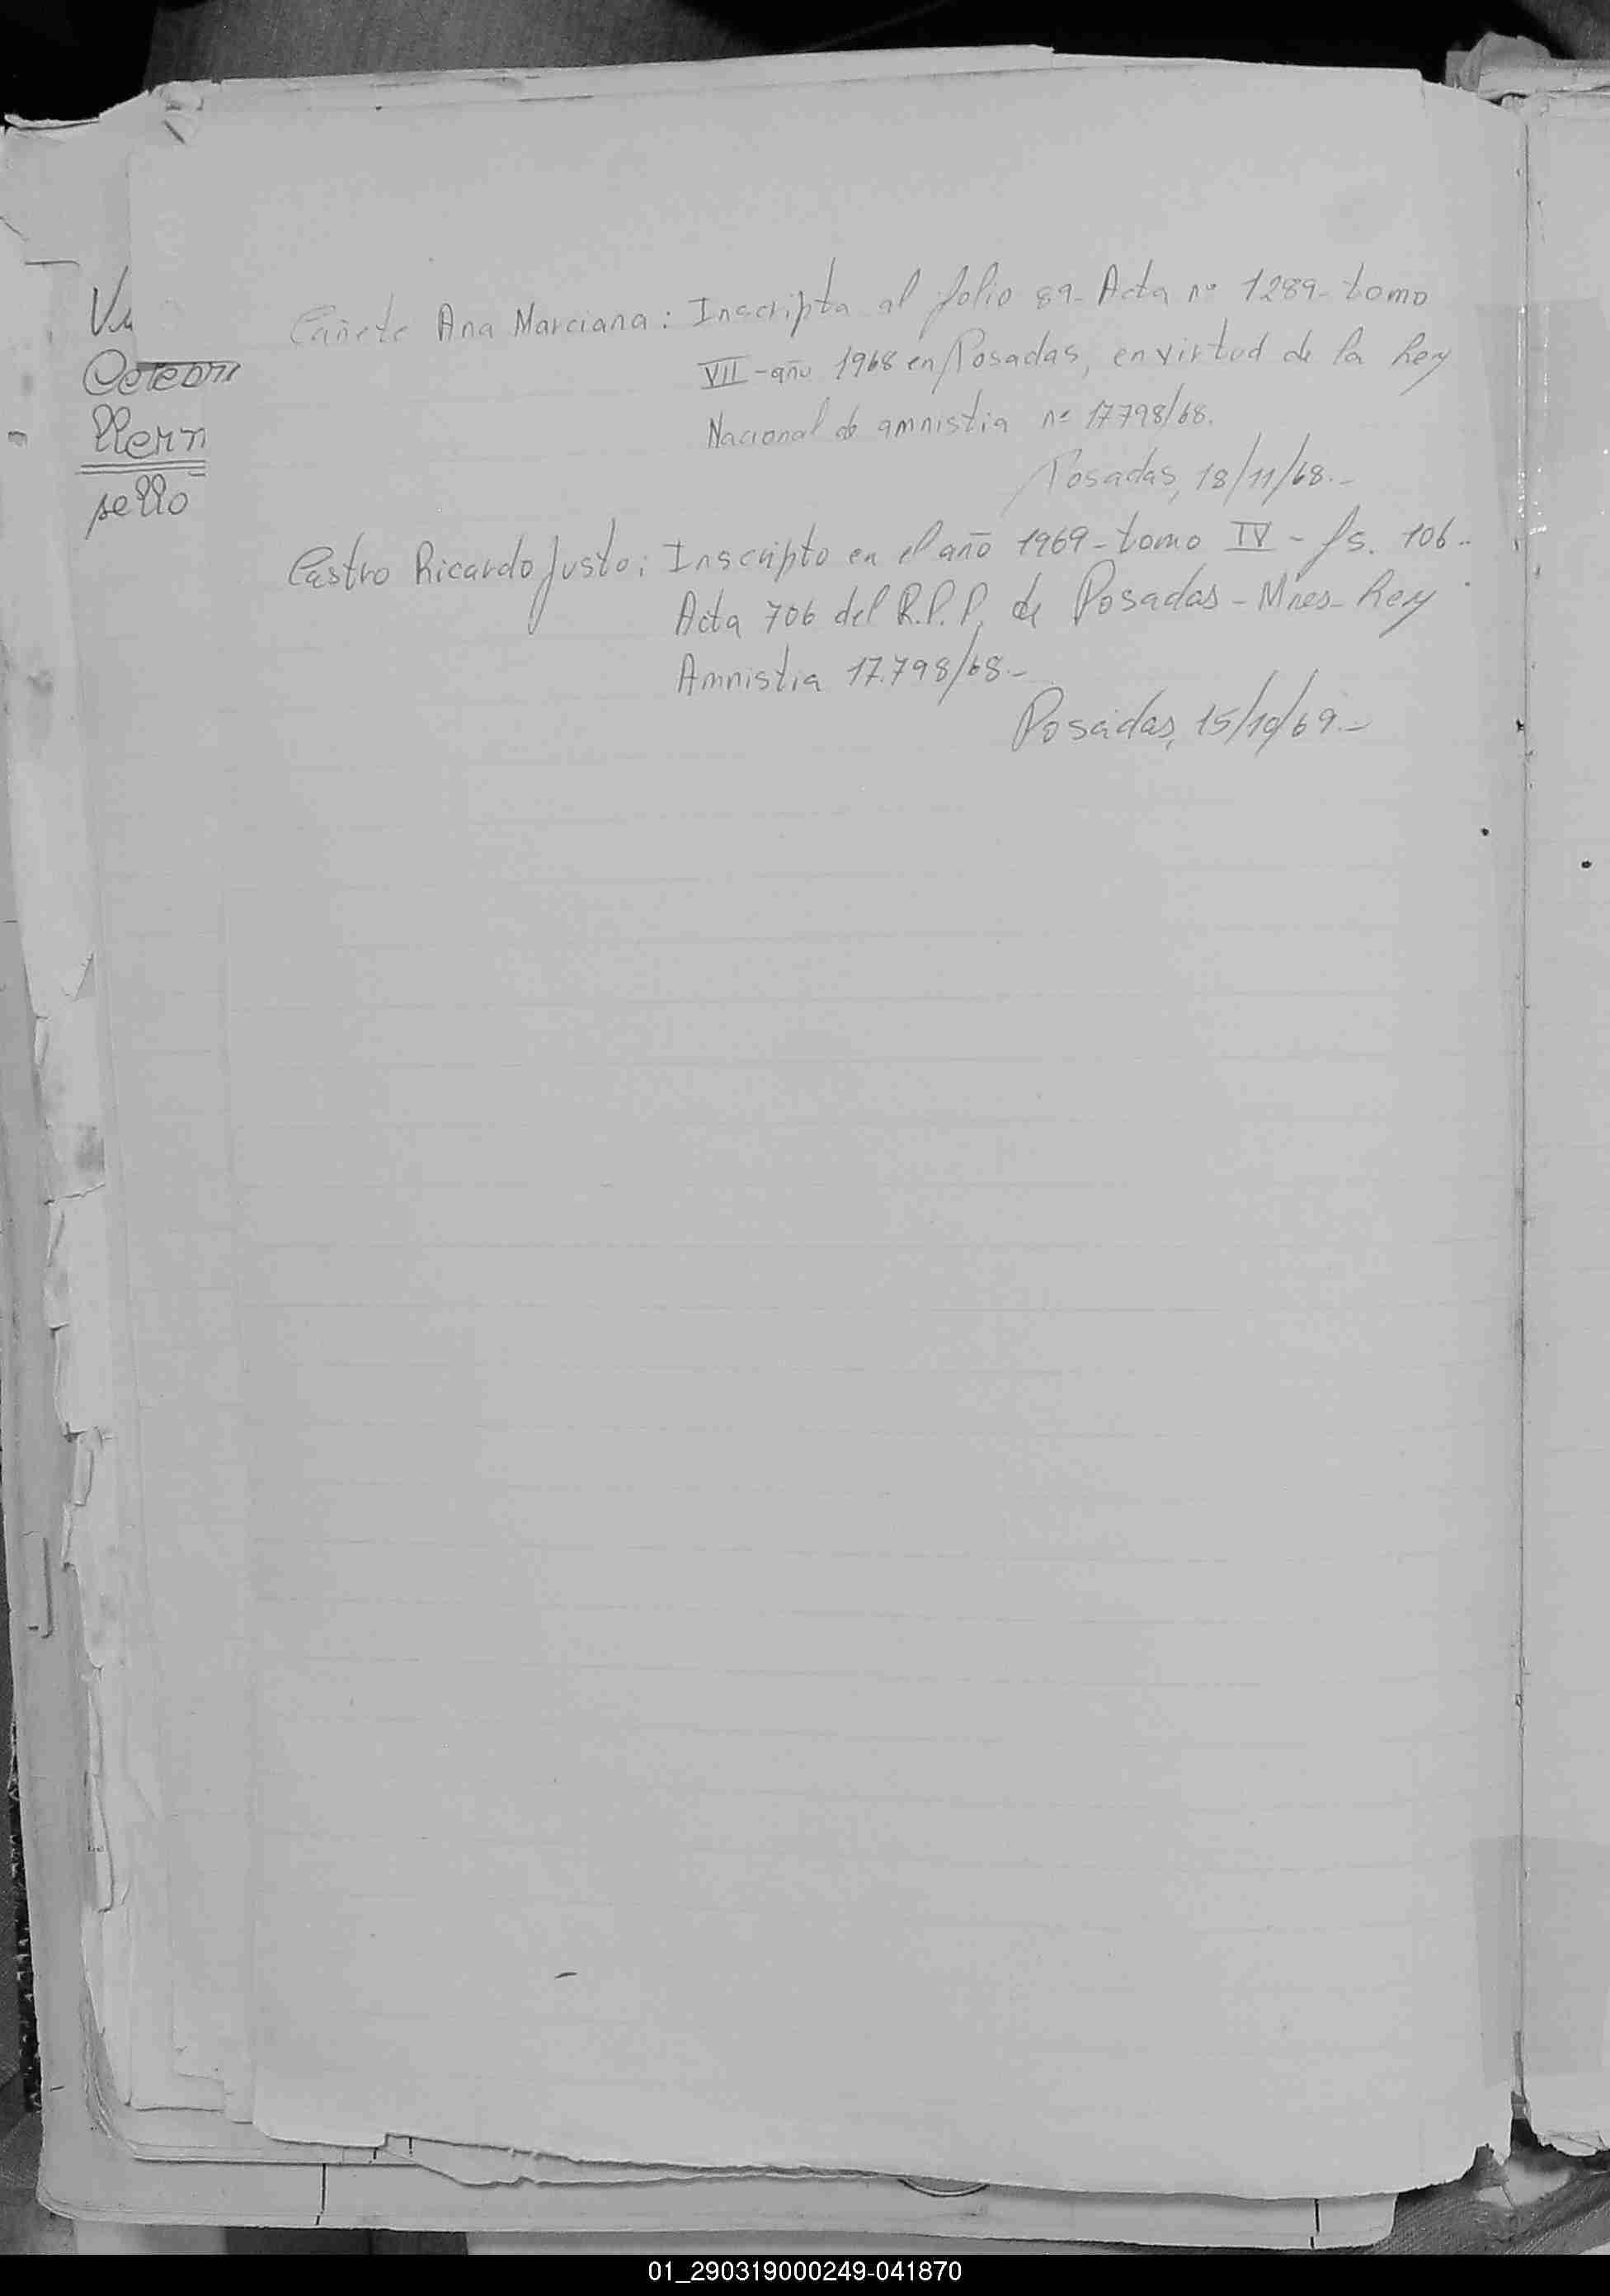 Cañete Ana Marciana: Inscripta al folio 89- Acta nº 1289- tomo
VII - año 1968 en Posadas, en virtud de la Ley
Nacional de amnistia nº 17798/68.
Posadas, 18/11/68.-
Castro Ricardo Justo: Inscripto en el año 1969 - tomo IV - fs. 106-
Acta 706 del R.P.P. de Posadas - Mnes- Ley
Amnistia 17.798/68.-
Posadas, 15/10/69.-
sello
01_290319000249-041870